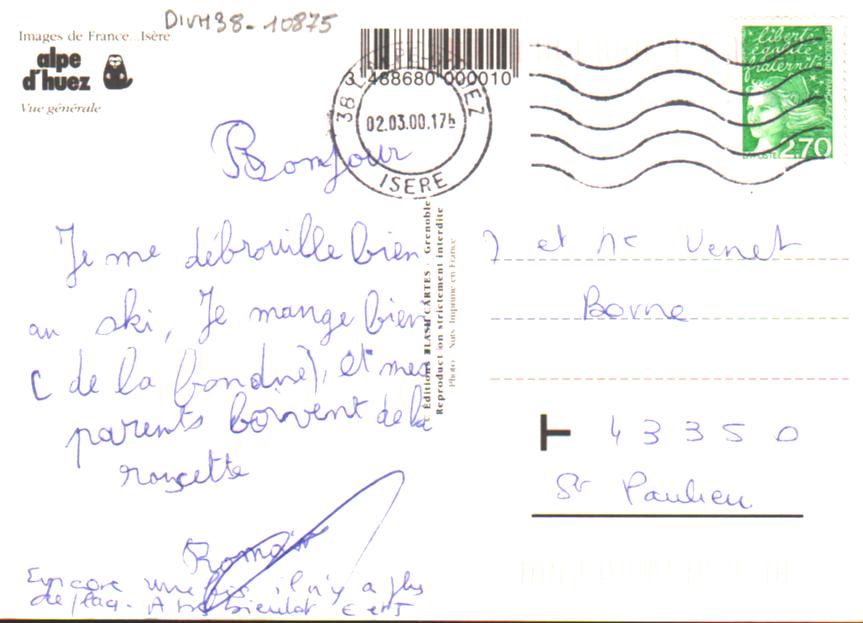 DIVH38-10875
Images de France...Isère
alpe
d'huez
Vue générale
3 468680 000010
38 L'ALPE D'HUEZ
02.03.00.17h
ISERE
liberté
égalité
fraternité
RÉPUBLIQUE FRANÇAISE
LA POSTE 2,70
Bonjour
Je me débrouille bien
au ski, Je mange bien
( de la fondue), et mes
parents boivent de la
roussette
Romain
Encore une fois il n'y a plus
de place. A très bientôt
© Éditions FLASH CARTES - Grenoble
Reproduction strictement interdite
Photo : Nuts Imprimé en France
et Me Venet
Borne
T 43350
St Paulien